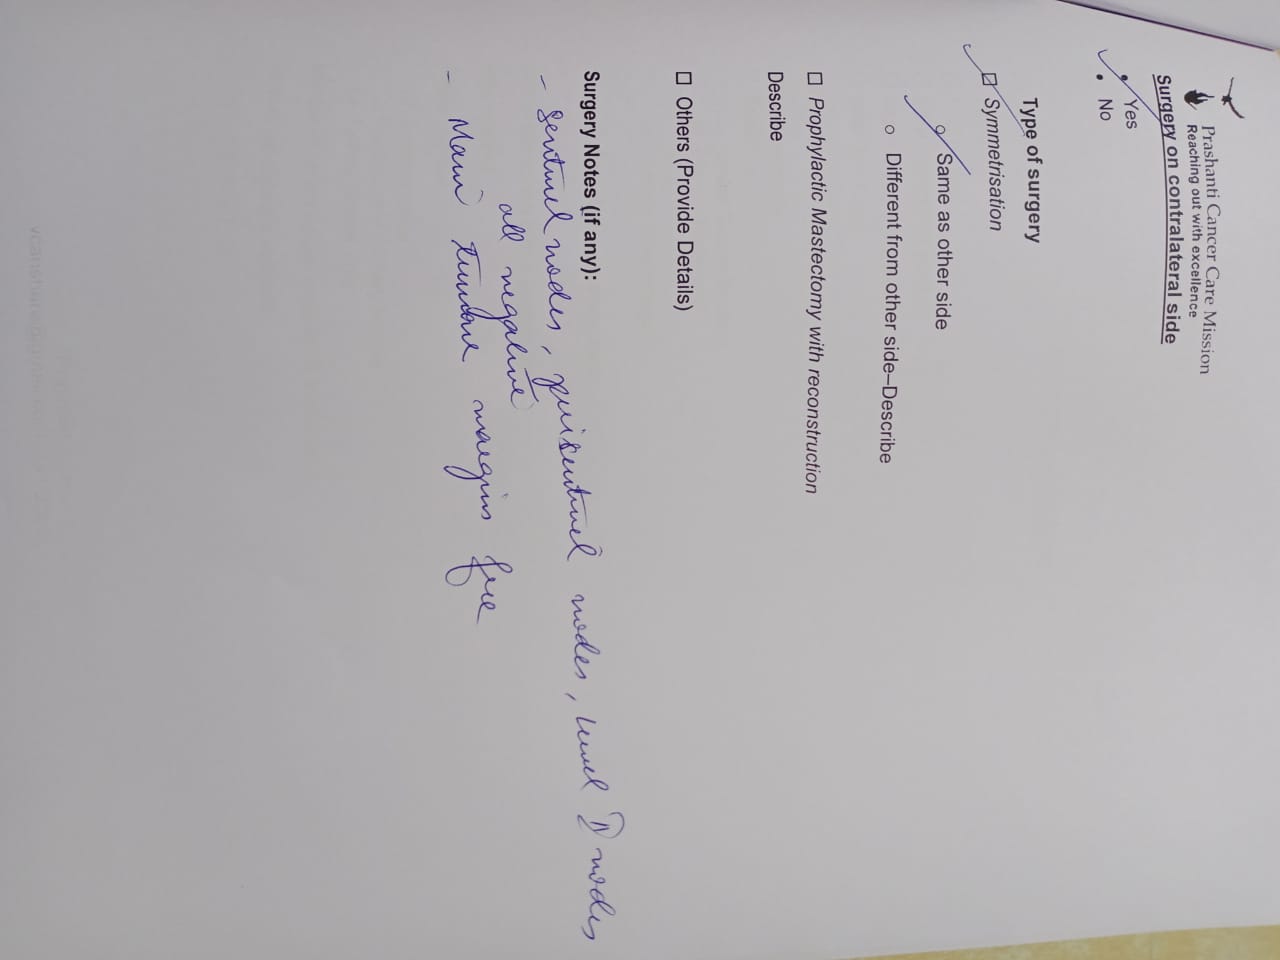 Prashanti Cancer Care Mission
Reaching out with excellence
Surgery on contralateral side
• Yes
• No
Type of surgery
☑ Symmetrisation
o Same as other side
o Different from other side–Describe
☐ Prophylactic Mastectomy with reconstruction
Describe
☐ Others (Provide Details)
Surgery Notes (if any):
- Sentinel nodes, perisentinel nodes, level I nodes
all negative
- Main tumour margins free